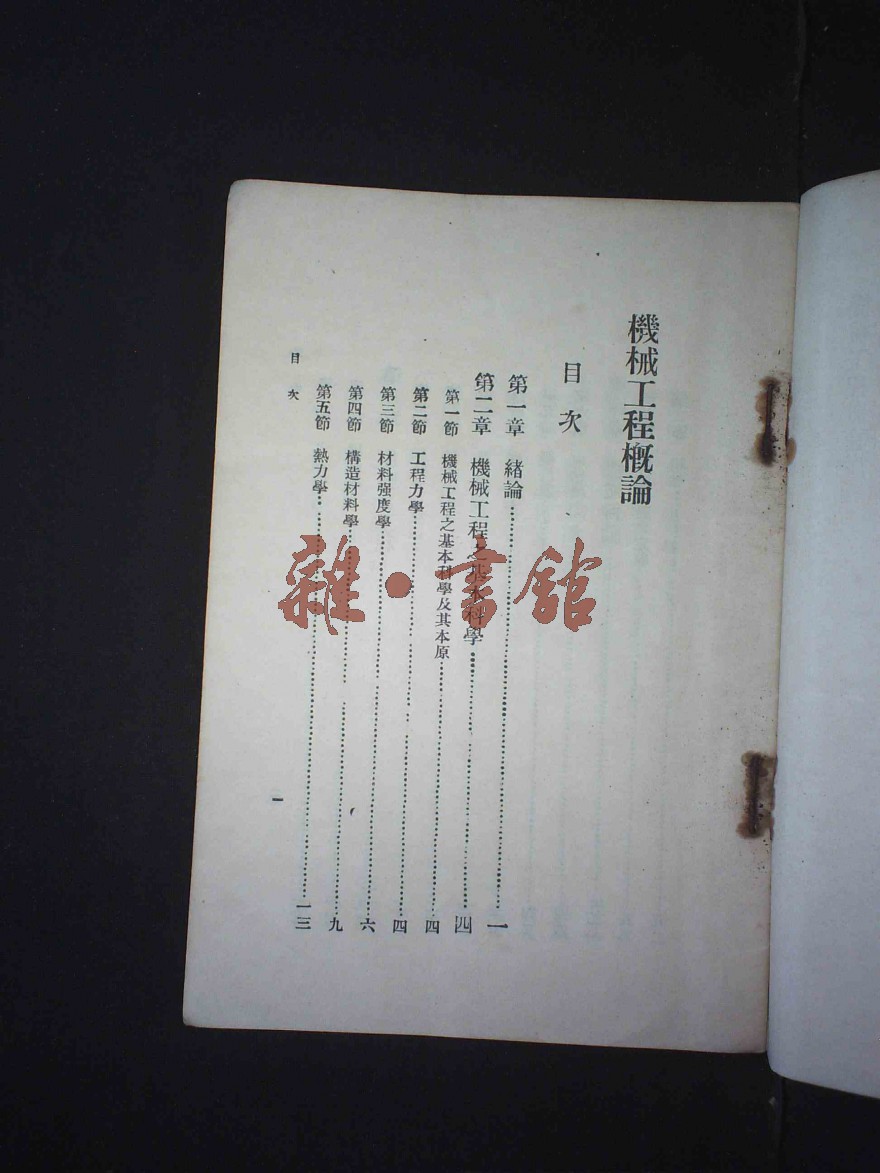 機械工程概論
目次
第一章 緒論……一
第二章 機械工程之基本科學……四
第一節 機械工程之基本科學及其本原……四
第二節 工程力學……四
第三節 材料强度學……六
第四節 構造材料學……九
第五節 熱力學……一三
目次
一
雜·書館